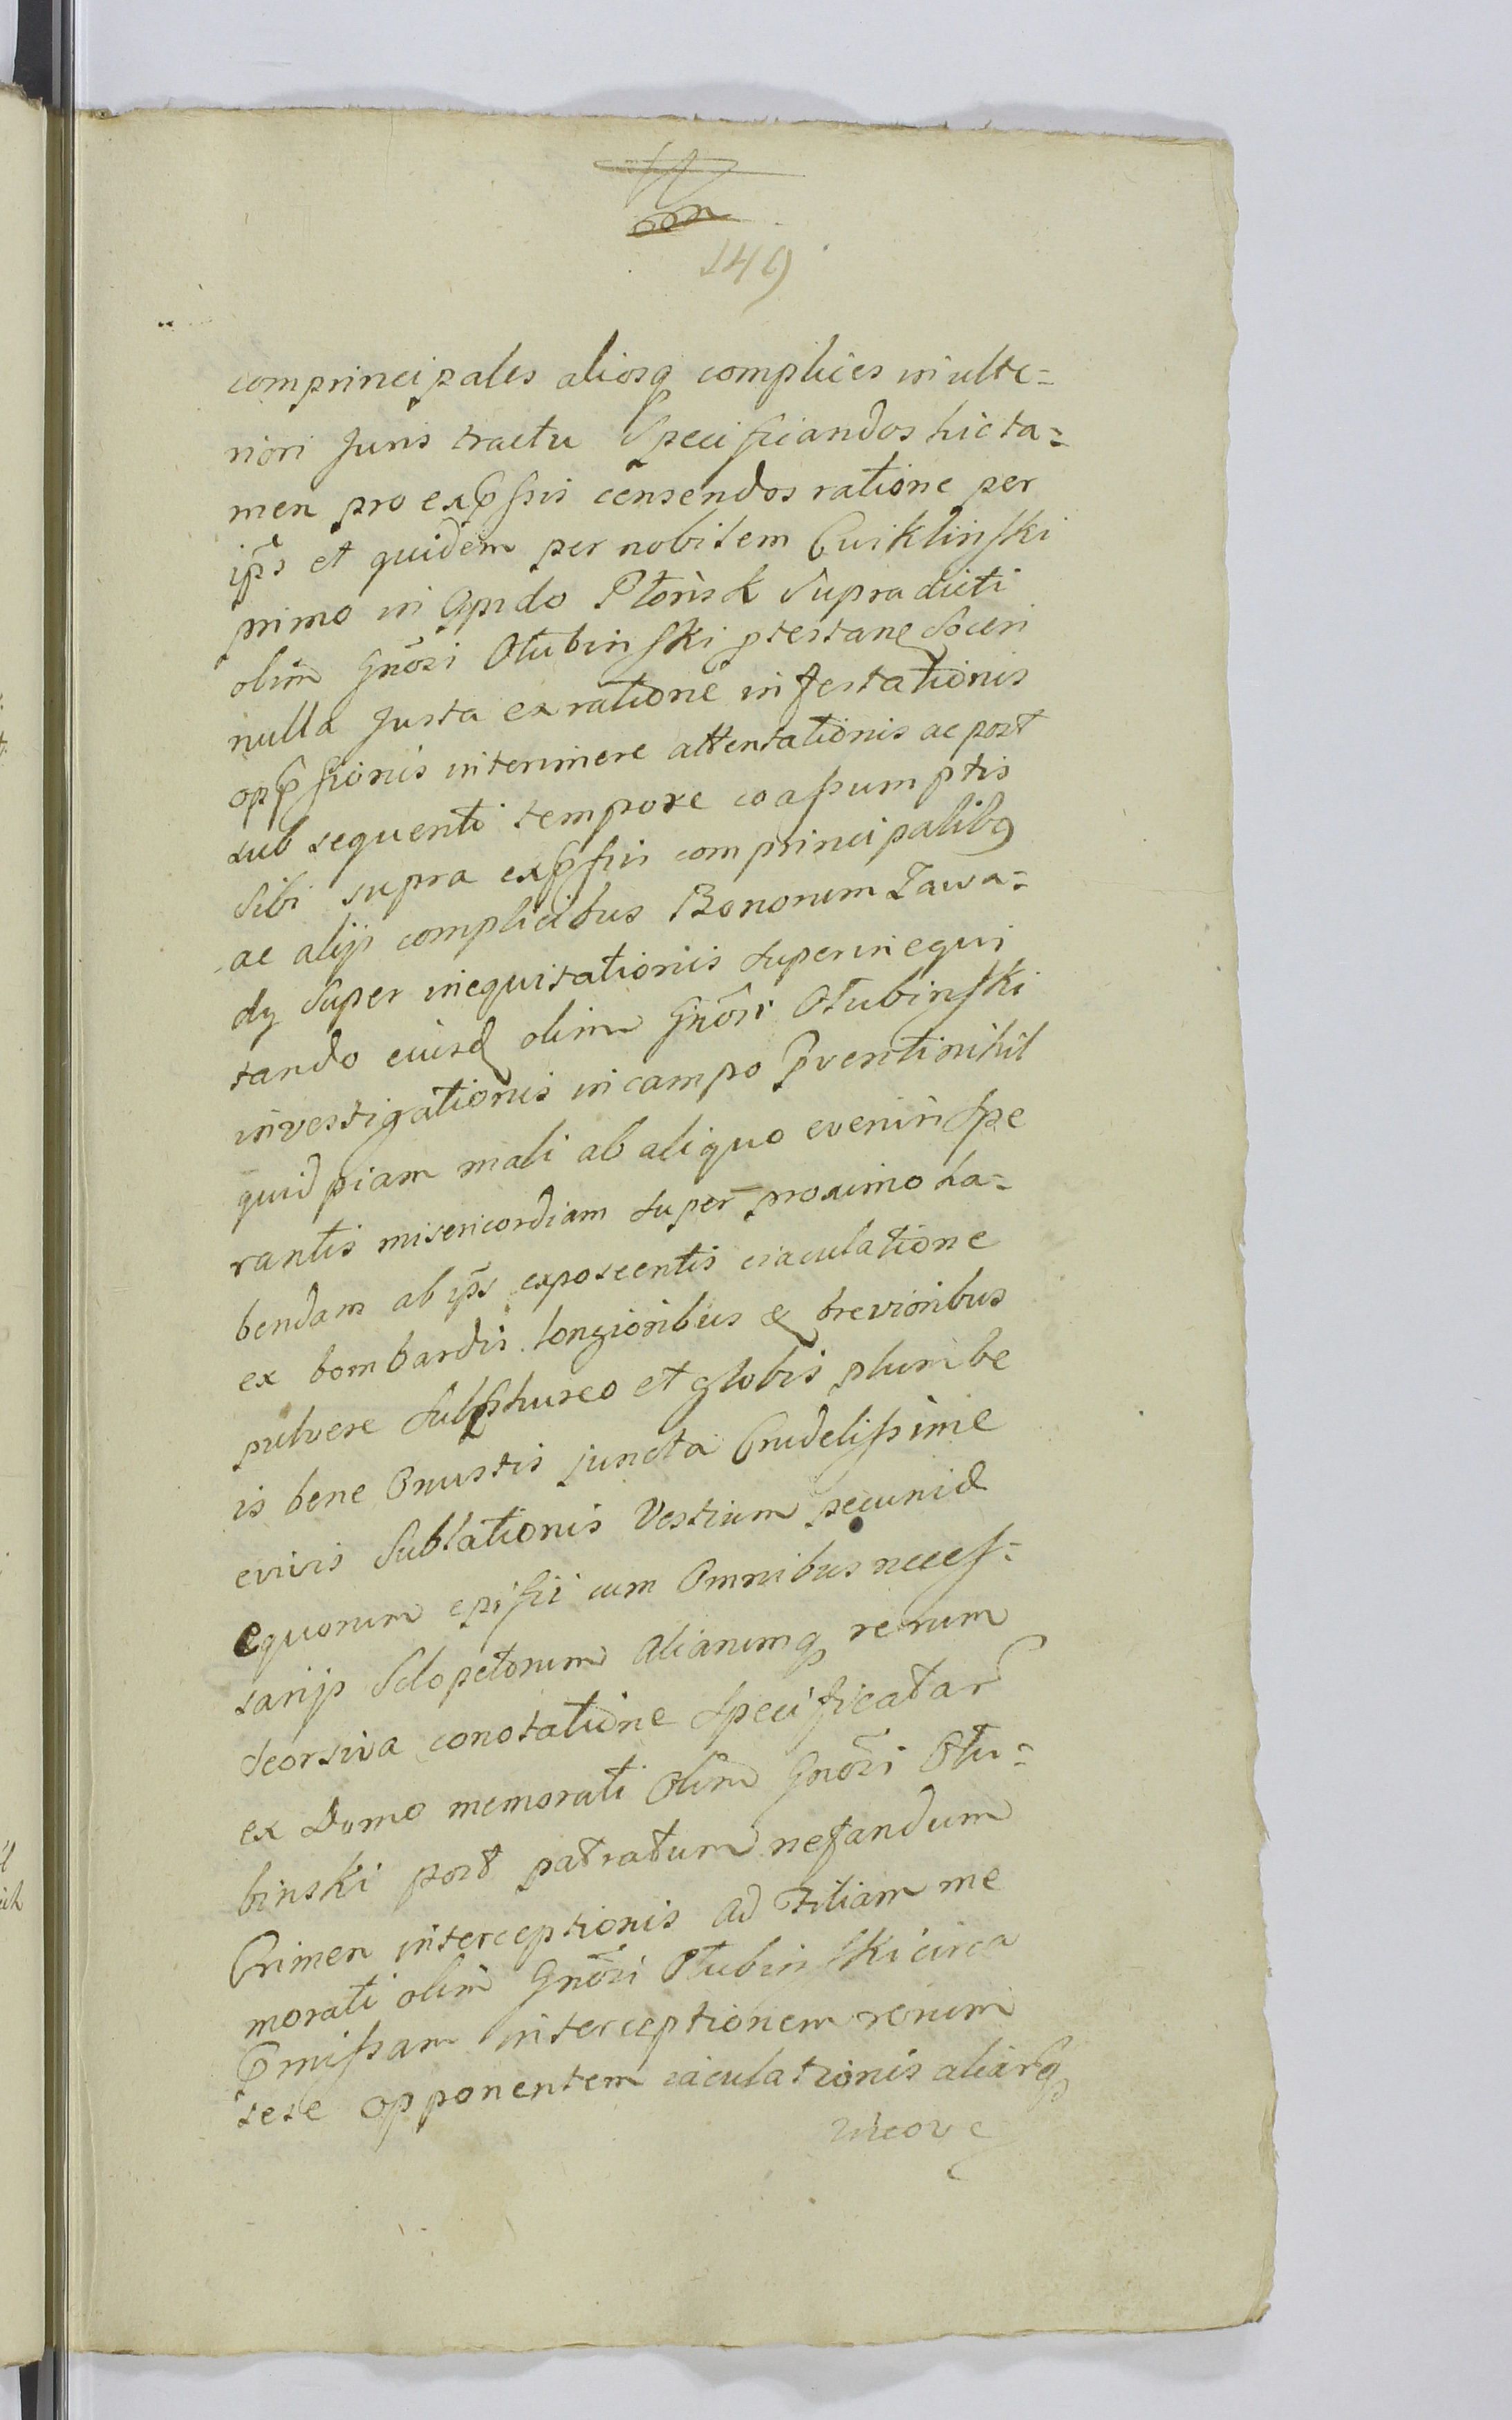 149
comprincipales aliosq complices in ulte=
riori Juris tractu Specificandos hic ta=
men pro exp̃ssis censendos ratione per
ip̃s et quidem per nobilem Cwiklinski
primo in Opido Płońsk Supradicti
olim Gñosi Otubinski ptestane Soceri
nulla Justa ex ratione infestationis
opp̃ssionis interimere attentationis ac post
subsequenti tempore coassumptis
Sibi supra exp̃ssis comprincipalibq
ac alijs complicibus Bonorum Zawa=
dy Super inequitationis Superinequi
tando eiusd olim Gñosi Otubinski
investigationis in campo p̃venti nihil
quidpiam mali ab aliquo evenire Spe
rantis misericordiam super proximo ha=
bendam ab ip̃s exposcentis eiaculatione
ex bombardis longioribus & brevioribus
pulvere Sulphureo et globis plumbe
is bene Onustis juncta Crudelissime
e vivis Sublationis Vestium pecuniæ
equorum ephippii cum Omnibus necess=
sarijs Sclopetorum Aliarumq rerum
Seorsiva conotatione Specificatar
ex Domo memorati Olim Gñosi Otu=
binski post patratum nefandum
Crimen interceptionis ad Filiam me
morati olim Gñosi Otubinski circa
p̃missam interceptionem rerum
sese opponentem iaculationis aliarq